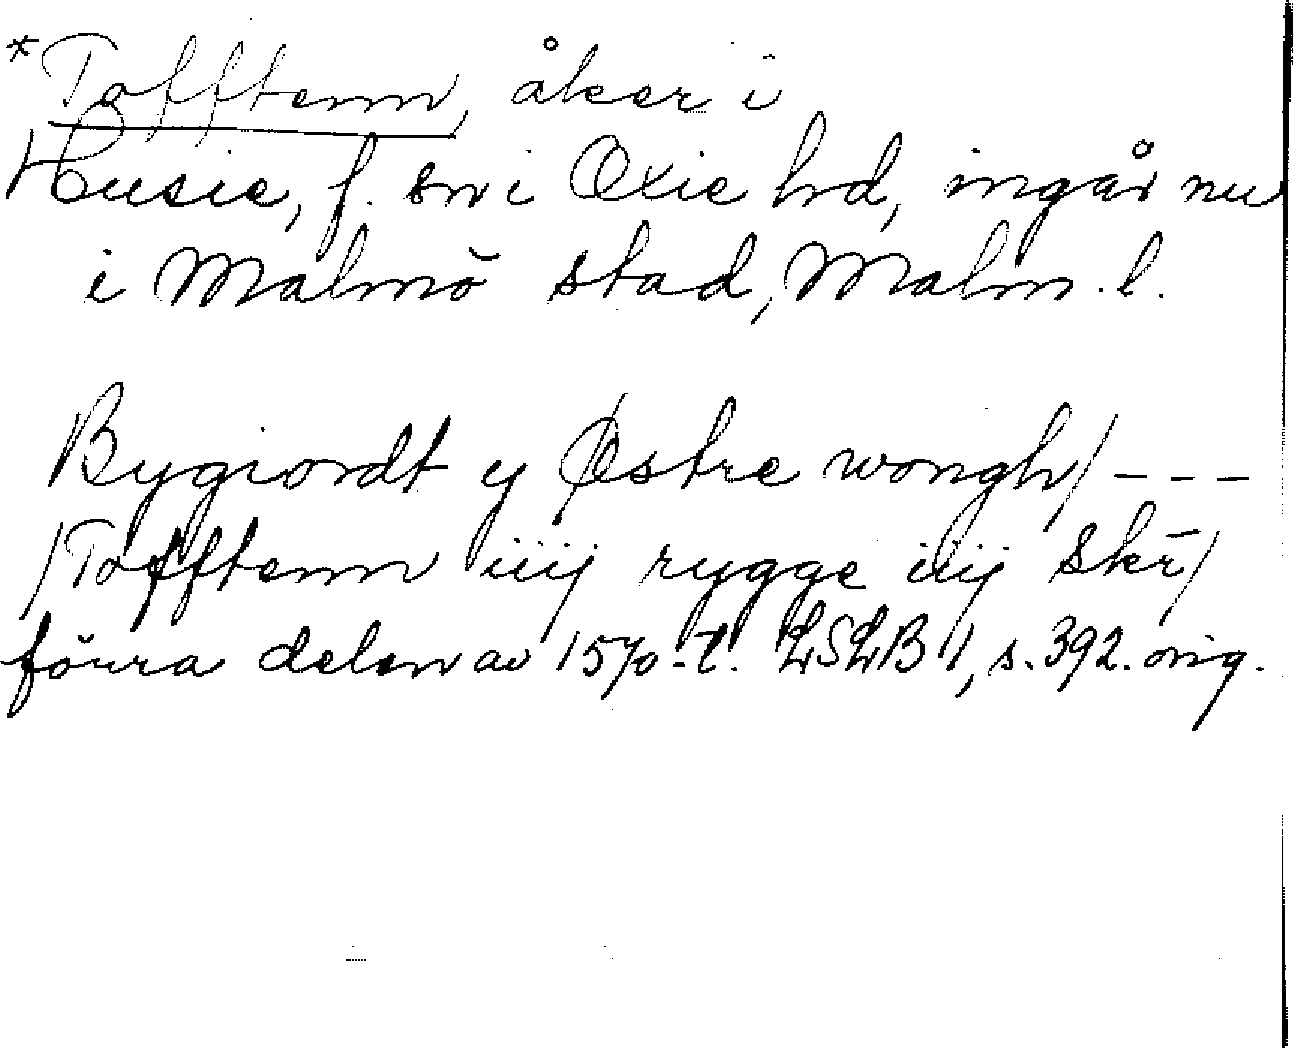 *Tofftenn, åker i
Husie, f. sn i Oxie hd, ingår nu
i Malmö stad, Malm. l.
Bygiordt y Østre wongh/ - - -
/Tofftenn iiij rygge iiij skr/
förra delen av 1570-t. LSLB 1, s. 392. orig.